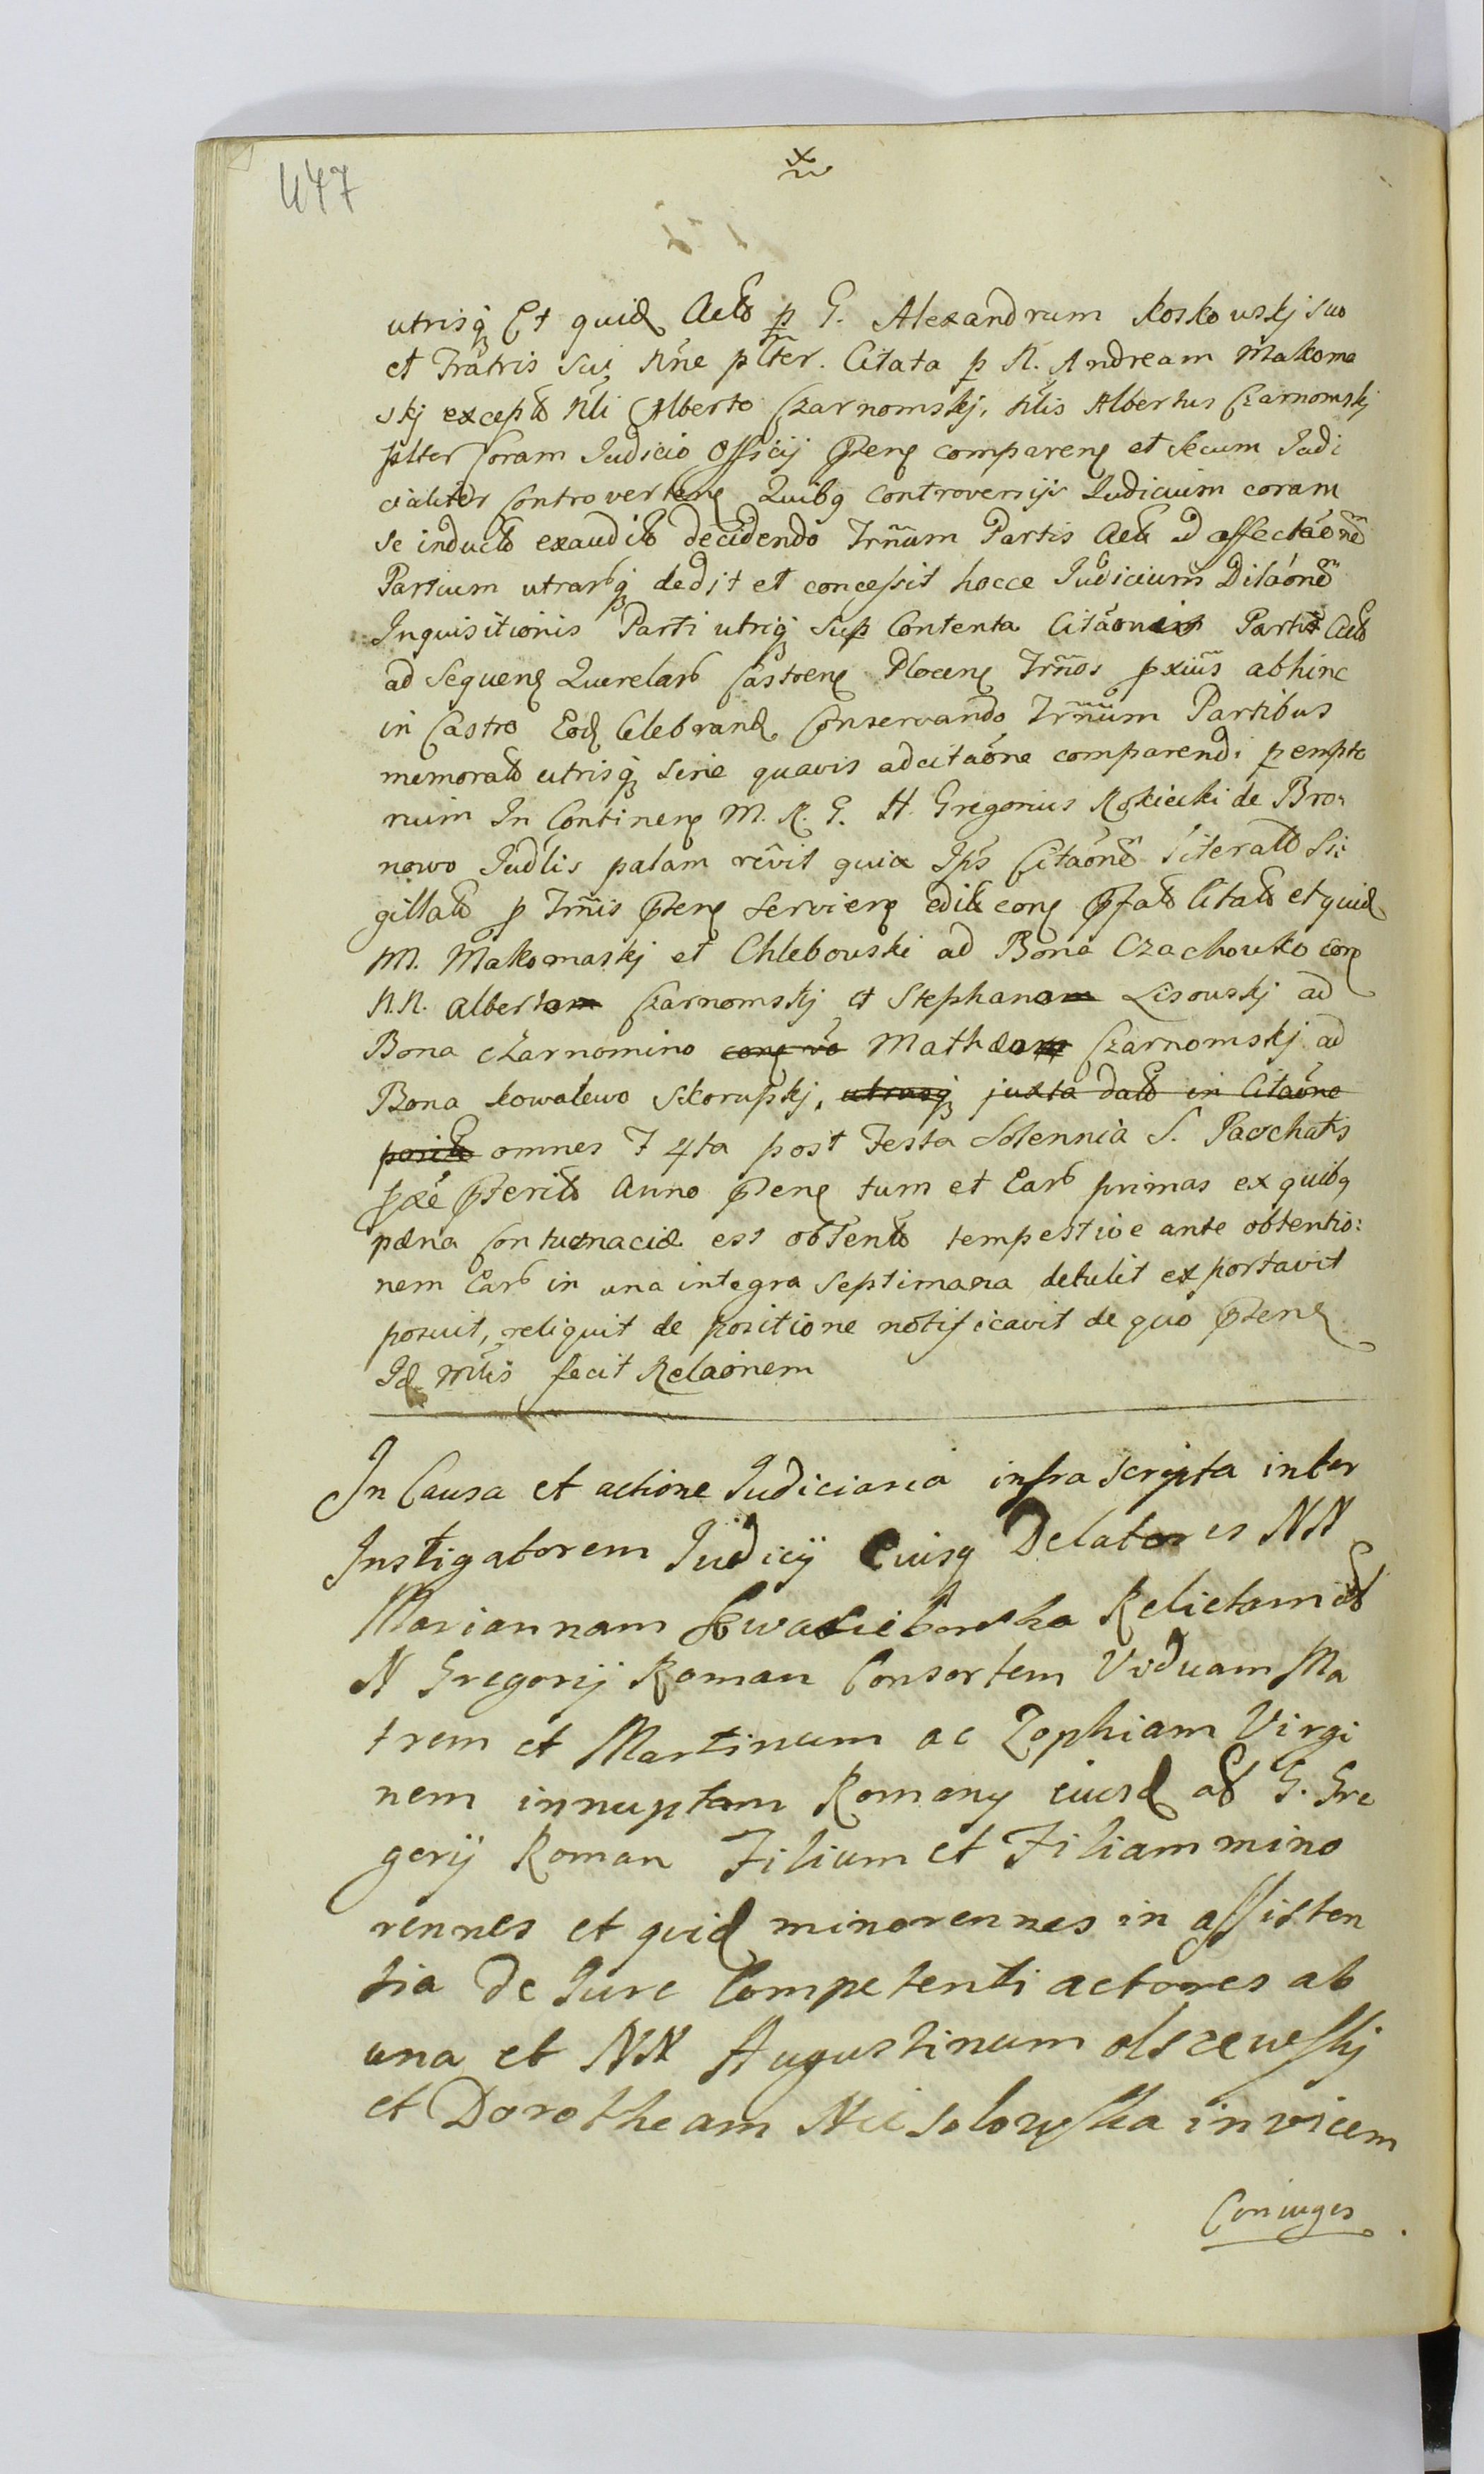 447
utrisq Et quid Acto p G. Alexandrum Koskowskj suo
et Frâtris Sui Nne plter. Citata p N. Andream Makoma
skj excepto Nli Alberto Czarnomskj, Nlis Albertus Czarnomskj
plter Coram Judicio Officij pten comparen et secum Judi
cialiter Controverten Quibq controversijs Judicium coram
se inducto exaudito decidendo Trnum Partis Acto ad affectâonẽ
Partium utrarq dedit et concessit hocce Judicium Dilâonẽ
Inquisitionis Parti utriq Sup Contenta Citâonis Partis Acto
ad Sequen Querelar Castren Plocen Trnos pxims abhinc
in Castro Eod Celebrand Conservando Trnum Partibus
memorato utrisq sine quavis adcitâone comparendi pempto
rium In Continen M. R. G. H. Gregorius Rokicki de Bro:
nowo Judlis palam rêvit quia Ips Citâonẽ literato Si:
gillato p Trnis pten Servien edit con pfato Citato et quid
M. Makomaskj et Chlebowski ad Bona Czachowko con
N.N. Albertom Czarnomskj et Stephanom Lisowskj ad
Bona Czarnomino con vo Mathæom Czarnomskj ad
Bona Kowalewo Skorupkj, utrasq juxta dato in Citâone
posito omnes F 4ta post Festa Solennia S. Paschatis
pxe pterito Anno pten tum et Ear primas ex quibq
pæna Contumaciæ est obtento tempestive ante obtentio:
nem Ear in una integra Septimana detulit exportavit
posuit, reliquit de positione notificavit de quo pten
Id mlis fecit Relaônem
In Causa et actione Judiciaria infra scripta inter
Instigatorem Judicij Eiusq Delatores NN
Mariannam Relictam
N Gregorij Roman Consortem Viduam Ma
trem et Martinum ac Zophiam Virgi
nem innuptam Romany eiusd G. Gre
gerij Roman Filium et Filiam mino
rennes et quid minorennes in assisten
tia de Jure Competenti actores ab
una et NN Augustinum olszewskj
et Dorotheam invicem
Coniuges